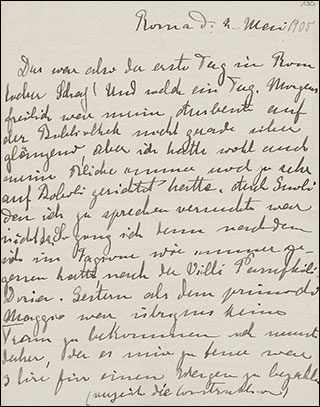 Roma d. 2. Mai 1905
Das war also der erste Tag in Rom
lieber Schatz! Und welch ein Tag. Morgens
freilich war meine Ausbeute auf
der Bibliothek nicht gerade sehr
glänzend, aber ich hatte wohl auch
meine Blicke immer noch zu sehr
auf gerichtet hatte, auch
den ich zu sprechen versuchte war
nicht da. So ging ich denn nachdem
ich im wie immer ge-
gessen hatte nach der Villa Pamphili
Doria. Gestern als dem primo di
Maggio war übrigens keine
Tram zu bekommen und
daher, der es mir zu war
3 lire für einen Wagen zu bezahlen